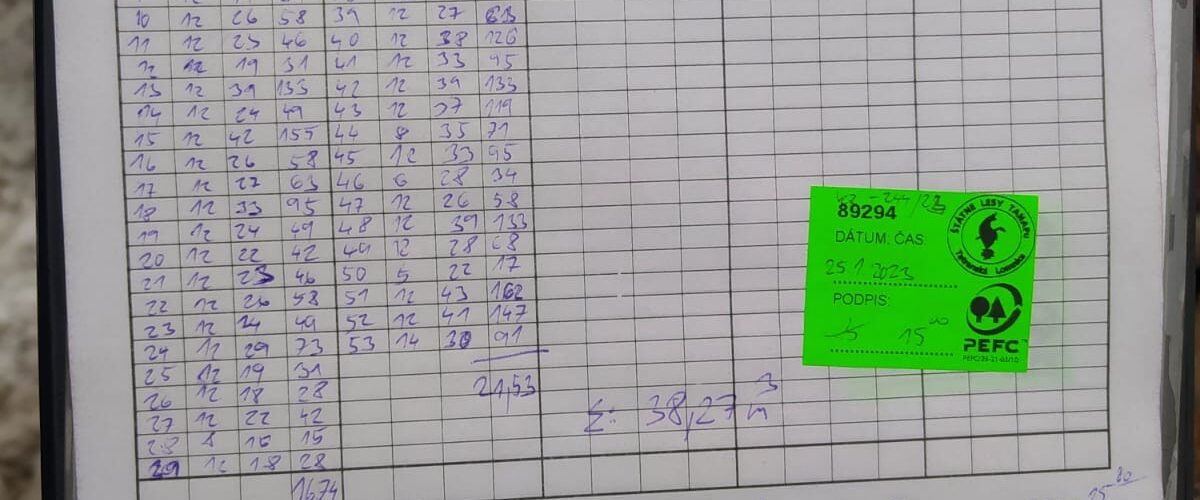 10 12 26 58 39 12 27
11 12 25 46 40 12 38 126
12 12 19 31 41 12 33 95
13 12 39 133 42 12 39 133
14 12 24 49 43 12 37 119
15 12 42 155 44 8 35 71
16 12 26 58 45 12 33 95
17 12 27 63 46 6 28 34
18 12 33 95 47 12 26 58
19 12 24 49 48 12 39 133
20 12 22 42 49 12 28 68
21 12 23 46 50 5 22 17
22 12 26 58 51 12 43 162
23 12 24 49 52 12 41 147
24 12 29 73 53 14 30 91
25 12 19 31
26 12 18 28
27 12 22 42
28 8 16 15
29 12 18 28
1674
Σ: 38,27 m³
89294
DÁTUM, ČAS:
25 1 2023
PODPIS:
15⁰⁰
ŠTÁTNE LESY TANAPU
Tatranská Lomnica
PEFC™